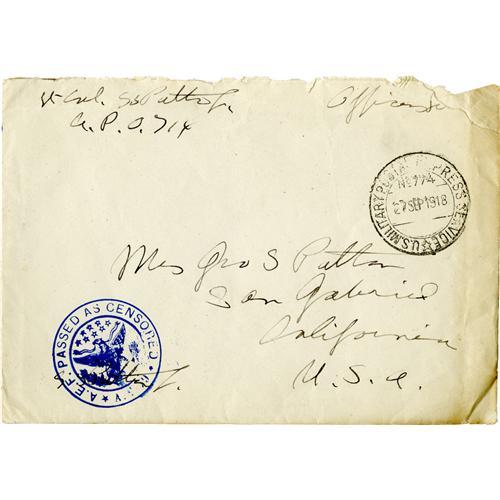 Lt Col. GS Patton Jr.
A.P.O. 714
Officers
U.S. MILITARY POSTAL EXPRESS SERVICE
No 774
27 SEP 1918
Mrs Geo S Patton
San Gabriel
California
U.S.A.
A.E.F. PASSED AS CENSORED